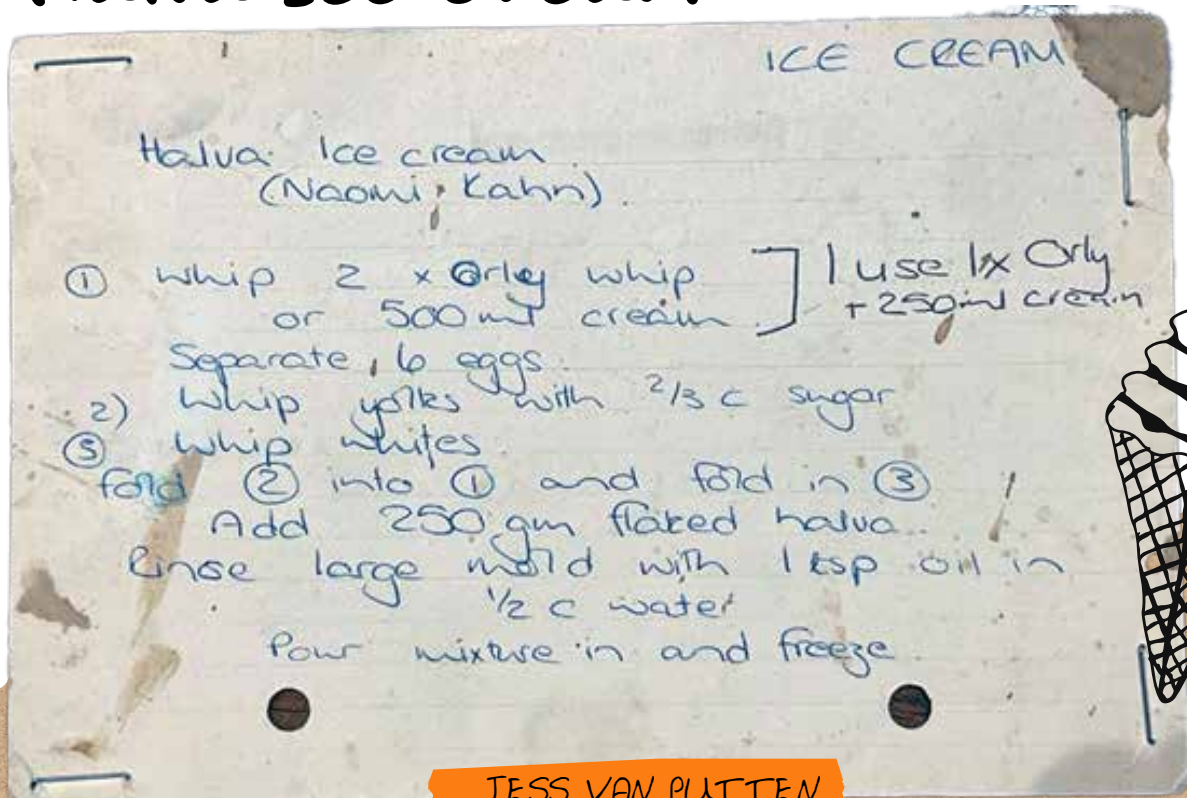 ICE CREAM
Halva Ice cream
(Naomi Kahn).
① Whip 2 x Orley whip
or 500 ml cream
] I use 1x Orly
+ 250 ml cream
Separate 6 eggs.
2) Whip yolks with 2/3 c sugar
③ Whip whites.
fold ② into ① and fold in ③
Add 250 gm flaked halva.
Rinse large mold with 1 tsp oil in
1/2 c water
Pour mixture in and freeze.
JESS VAN PUTTEN